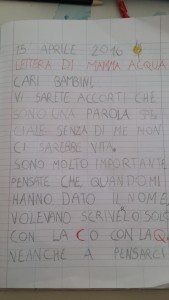 15 APRILE 2016
LETTERA DI MAMMA ACQUA
CARI BAMBINI
VI SARETE ACCORTI CHE
SONO UNA PAROLA SPE
CIALE SENZA DI ME NON
CI SAREBBE VITA.
SONO MOLTO IMPORTANTE
PENSATE CHE QUANDO MI
HANNO DATO IL NOME
VOLEVANO SCRIVELO SOL
CON LA C O CON LA Q
NEANCHE A PENSARCI